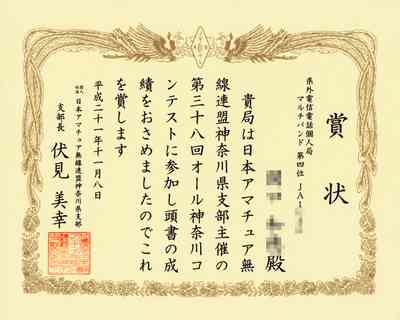 賞状
県外電信電話個人局
マルチバンド 第四位 JA1
殿
貴局は日本アマチュア無
線連盟神奈川県支部主催の
第三十八回オール神奈川コ
ンテストに参加し頭書の成
績をおさめましたのでこれ
を賞します
平成二十一年十一月八日
社団法人 日本アマチュア無線連盟神奈川県支部
支部長 伏見 美幸